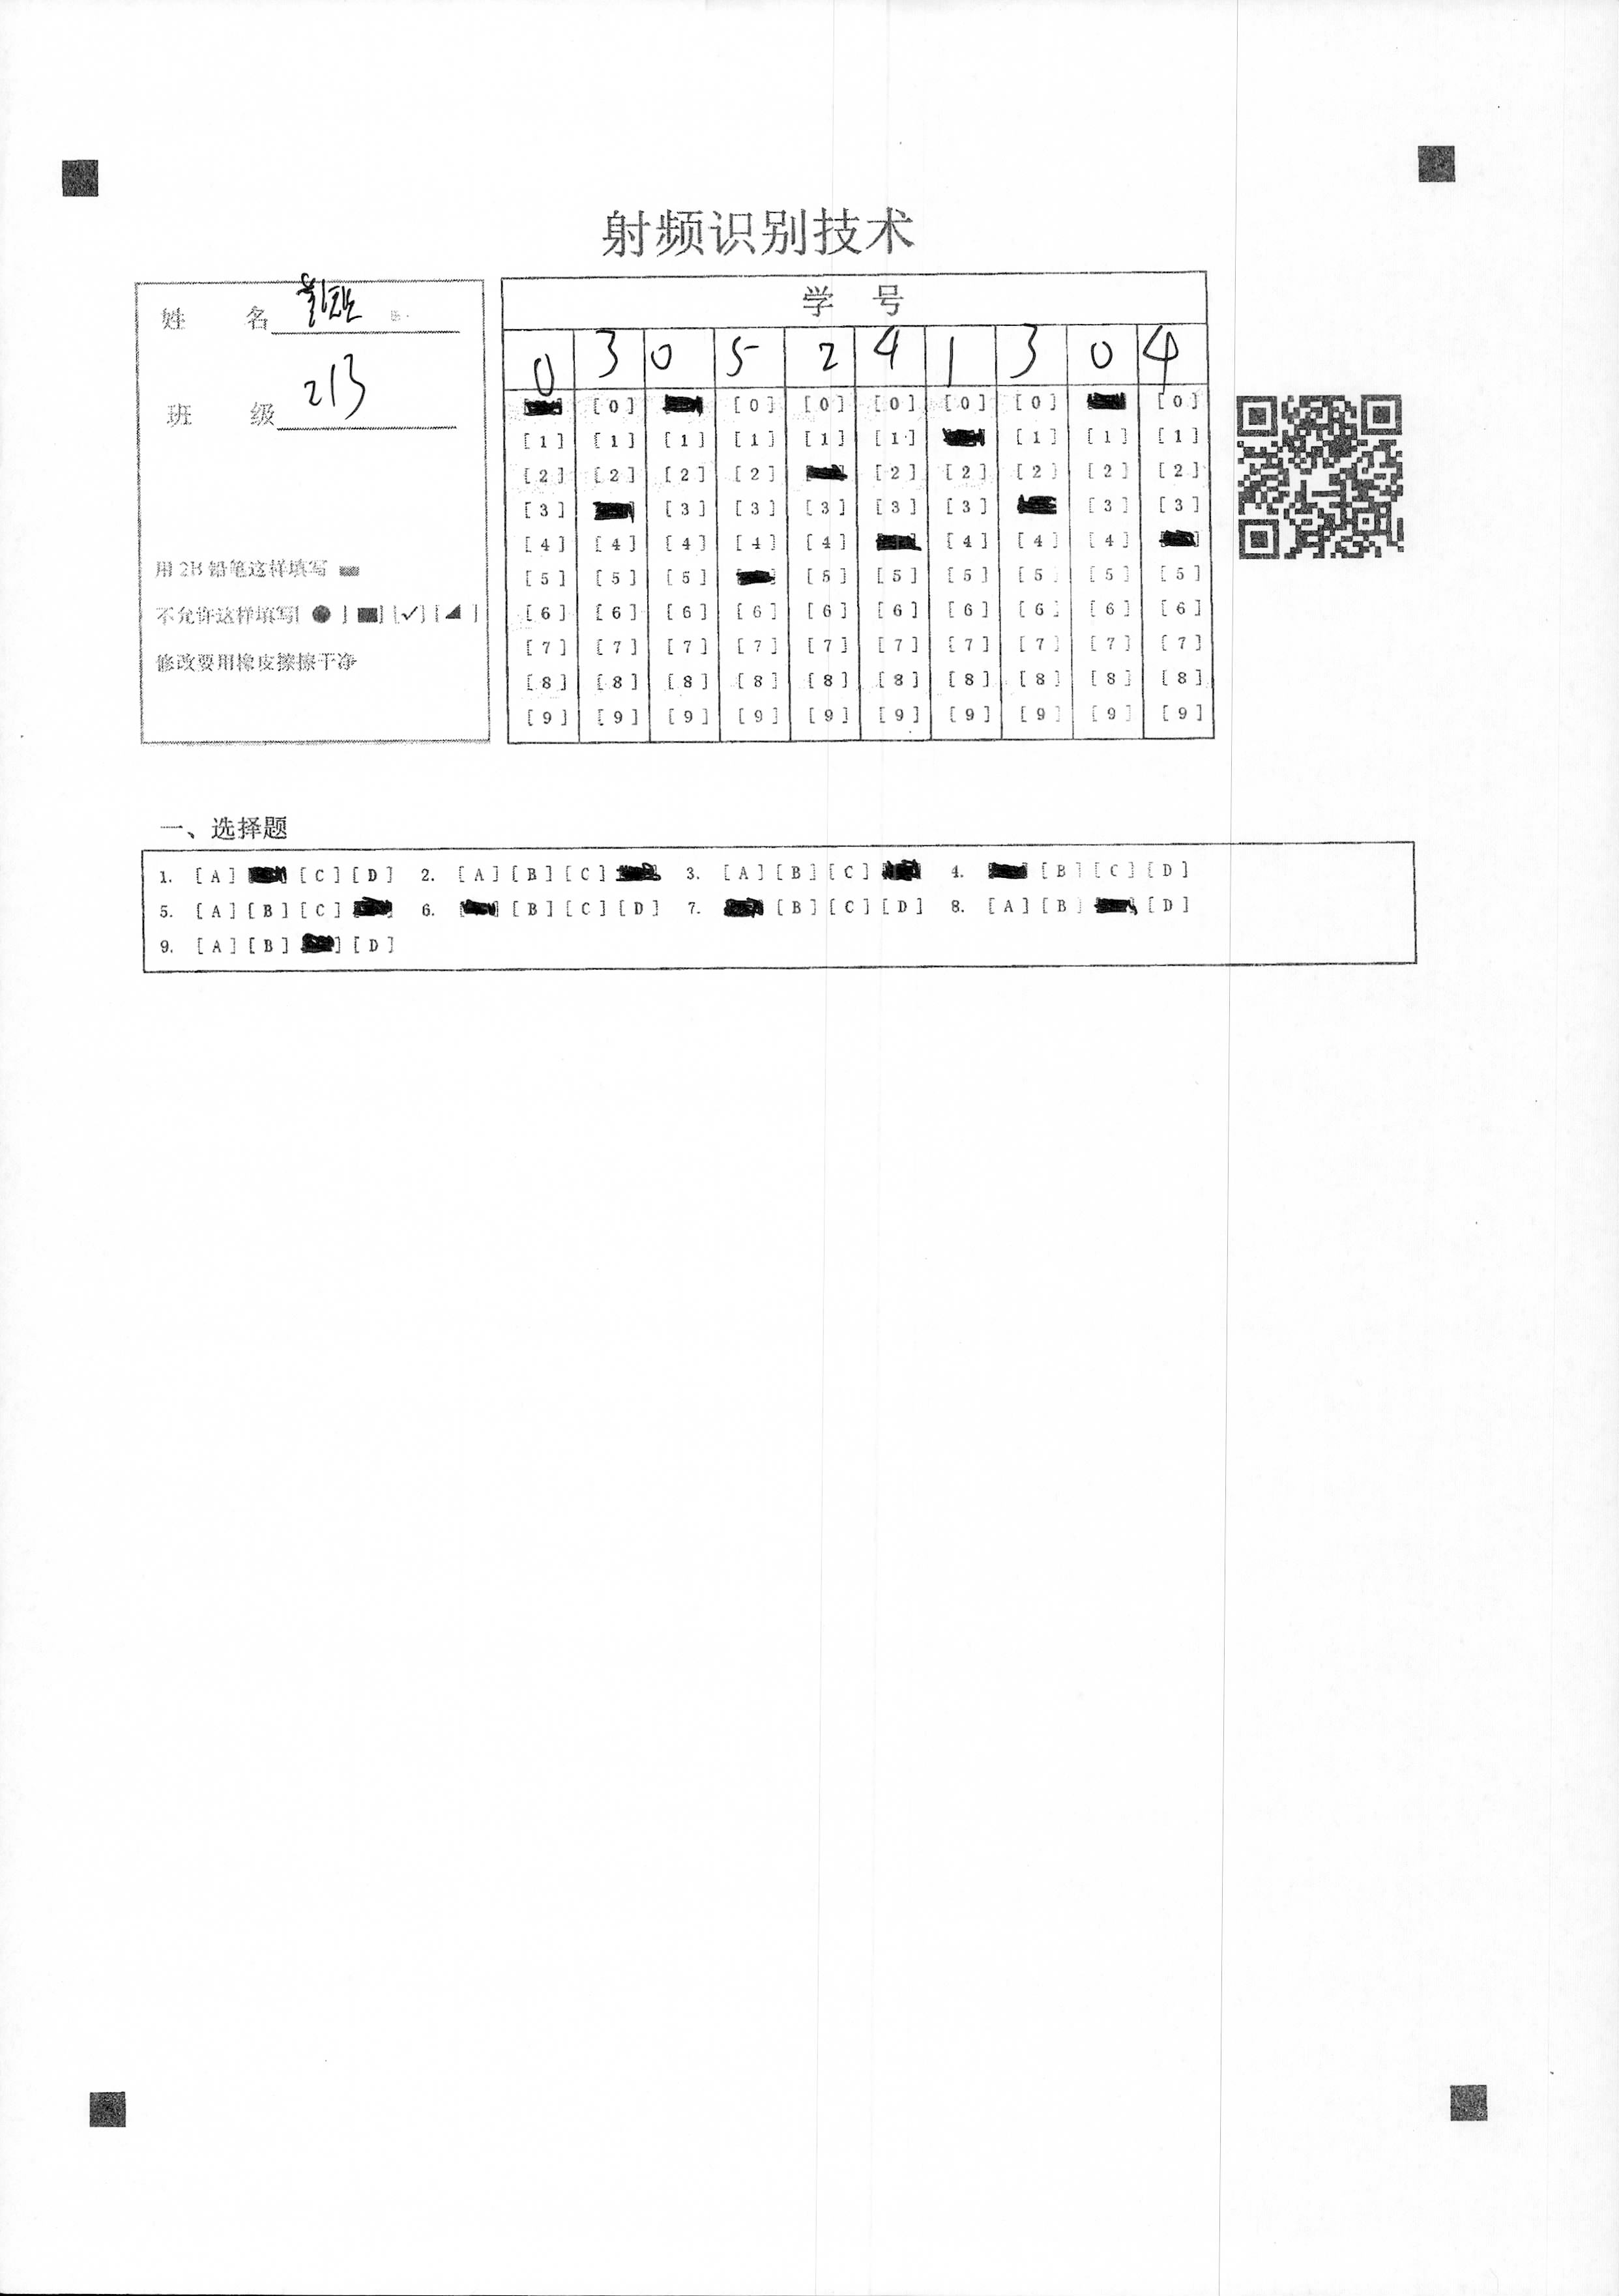 射频识别技术
姓 名
班 级 213
用 2B 铅笔这样填写
不允许这样填写[ ● ] [■] [✓] [◢ ]
修改要用橡皮擦擦干净
学 号
0 3 0 5 2 4 1 3 0 4
[0] [0] [0] [0] [0] [0] [0]
[1] [1] [1] [1] [1] [1] [1] [1] [1]
[2] [2] [2] [2] [2] [2] [2] [2] [2]
[3] [3] [3] [3] [3] [3] [3] [3]
[4] [4] [4] [4] [4] [4] [4] [4]
[5] [5] [5] [5] [5] [5] [5] [5] [5]
[6] [6] [6] [6] [6] [6] [6] [6] [6] [6]
[7] [7] [7] [7] [7] [7] [7] [7] [7] [7]
[8] [8] [8] [8] [8] [8] [8] [8] [8] [8]
[9] [9] [9] [9] [9] [9] [9] [9] [9] [9]
一、选择题
1. [A] [C] [D] 2. [A] [B] [C] 3. [A] [B] [C] 4. [B] [C] [D]
5. [A] [B] [C] 6. [B] [C] [D] 7. [B] [C] [D] 8. [A] [B] [D]
9. [A] [B] [D]